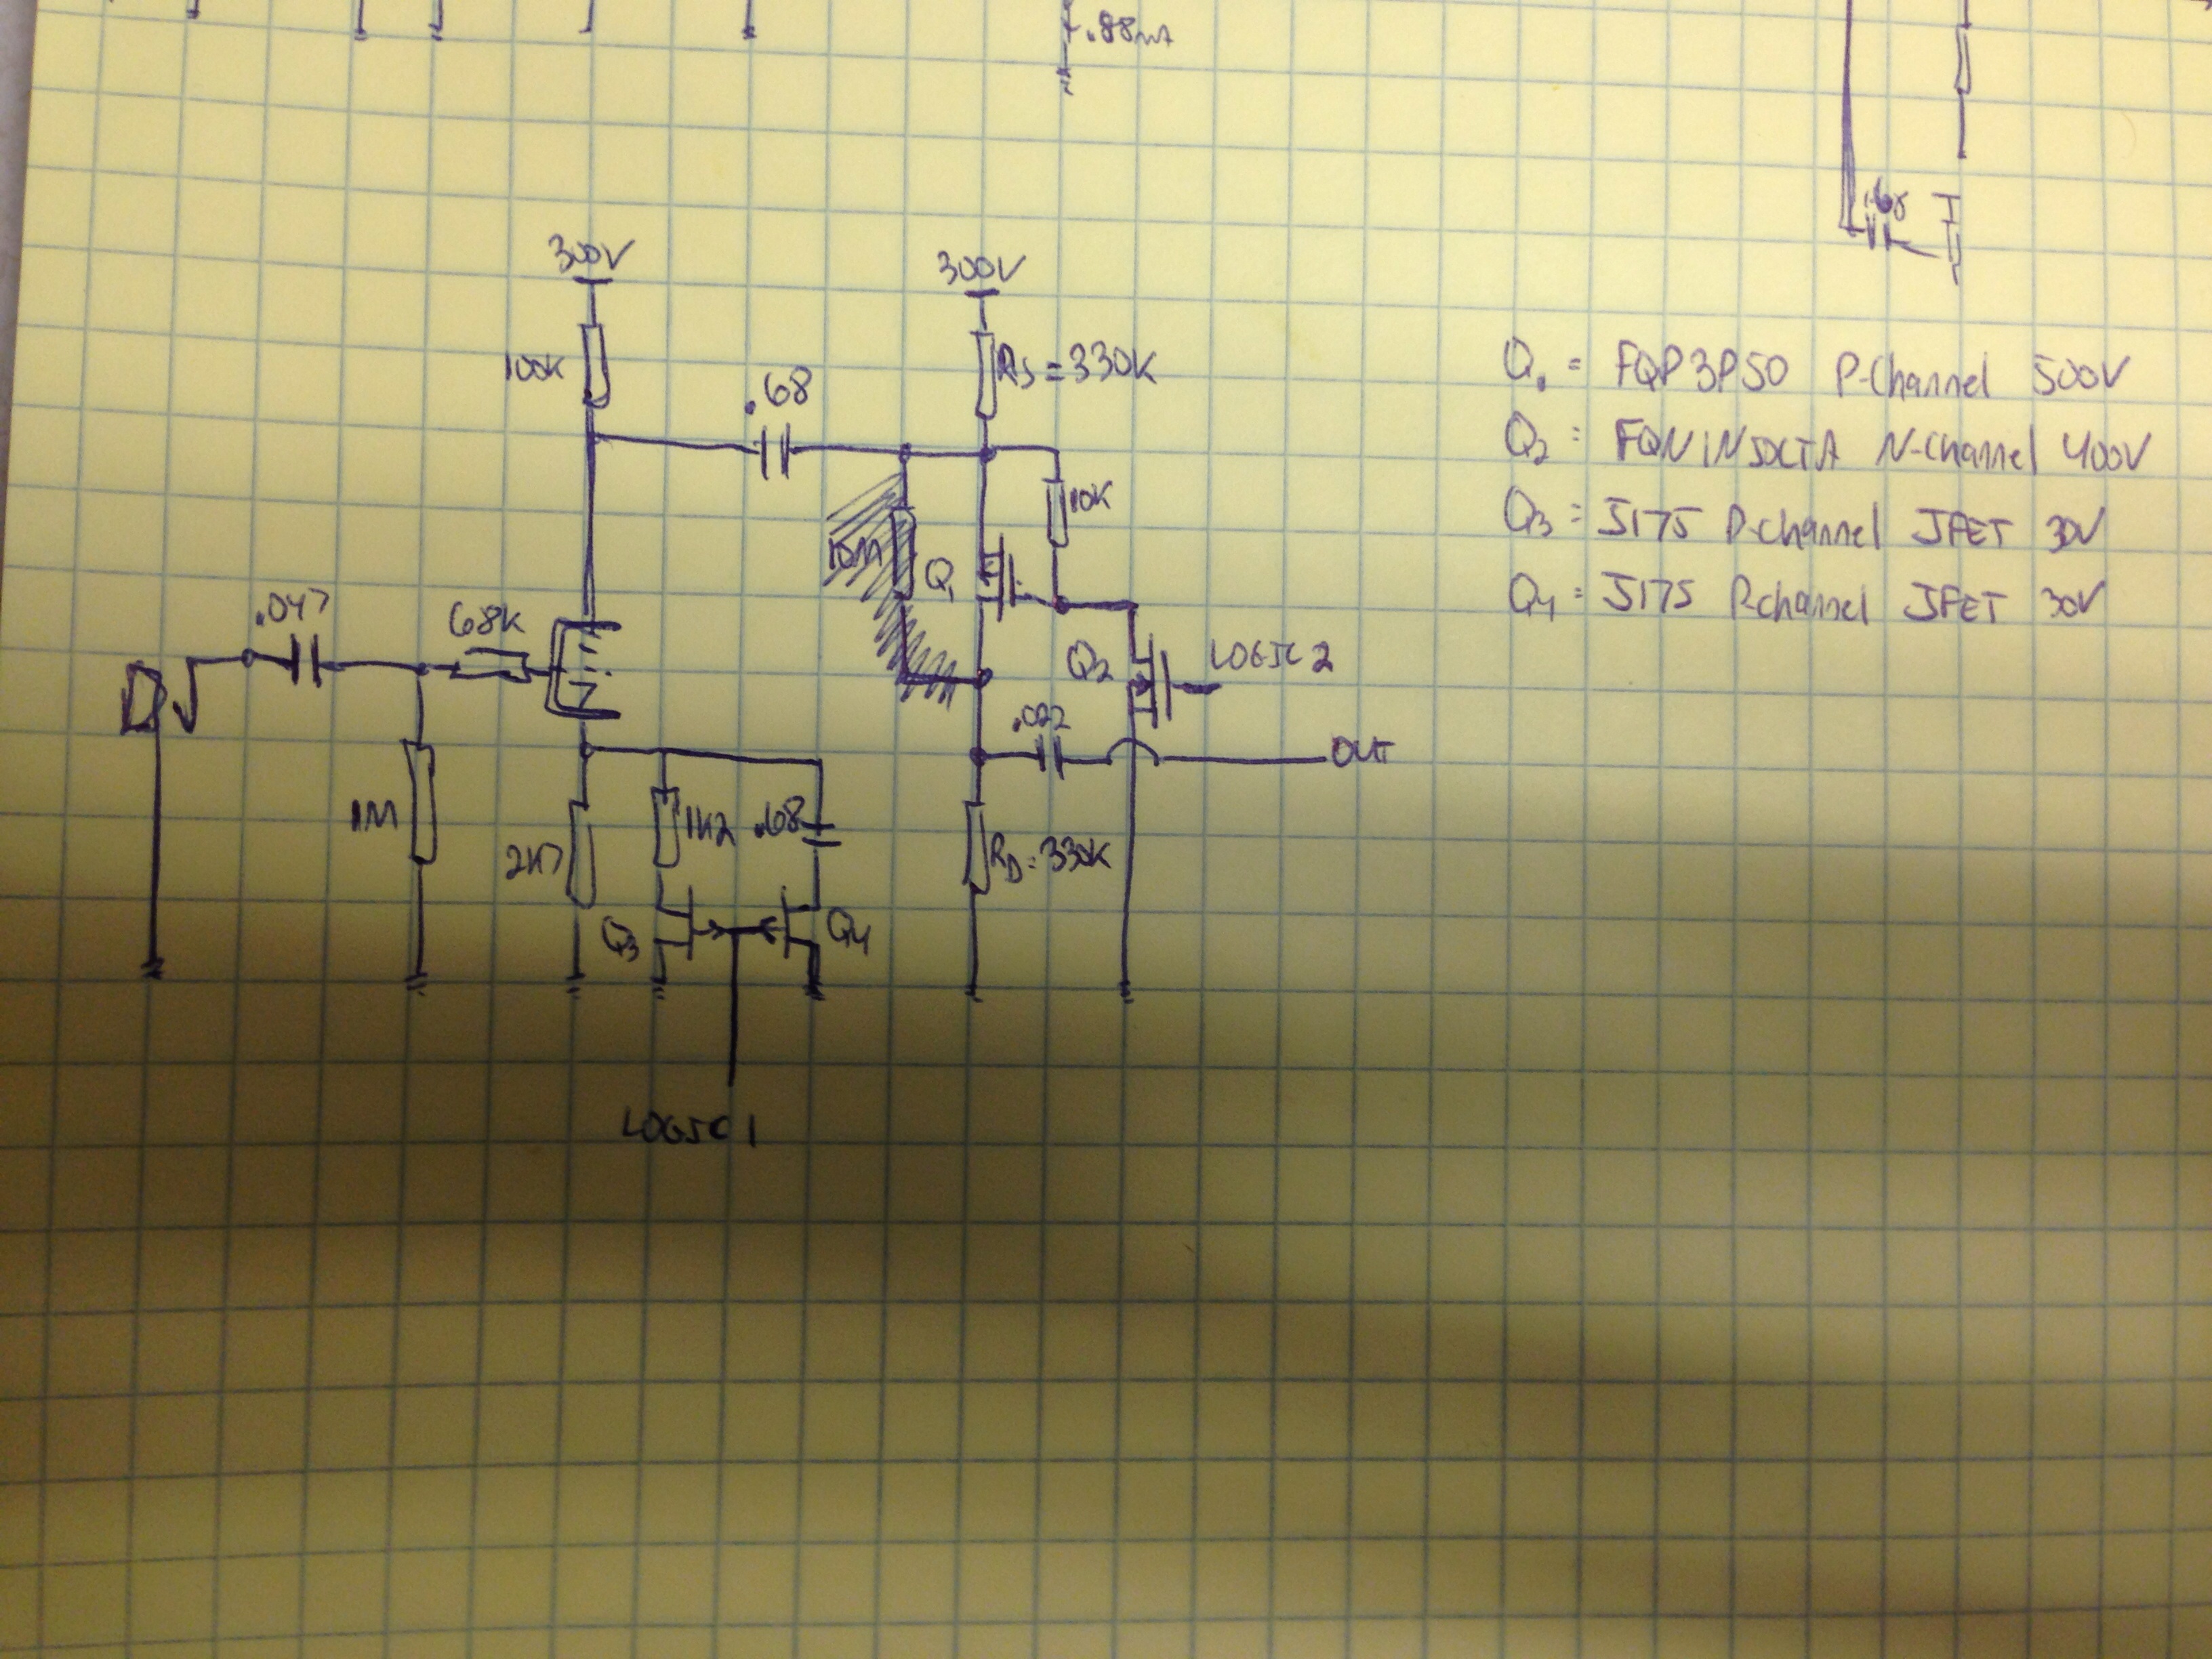 .88
.68
300V
300V
100K
.68
RS = 330K
10K
10M
Q1
.047
68K
Q2
LOGIC 2
.022
OUT
1M
2K7
1K2
.68
RD = 330K
Q3
Q4
LOGIC 1
Q1 = FQP3P50 P-Channel 500V
Q2 = N-Channel 400V
Q3 = J175 P-channel JFET 30V
Q4 = J175 P-channel JFET 30V